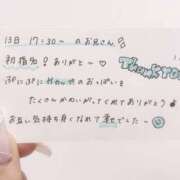 13日 17:30〜 のお兄さん
初指名!ありがと〜♡
THANK YOU
ぷにぷに のおっぱいを
たくさんかわいがってくれてありがとう♪
お互い気持ち良くなれて幸せでした〜